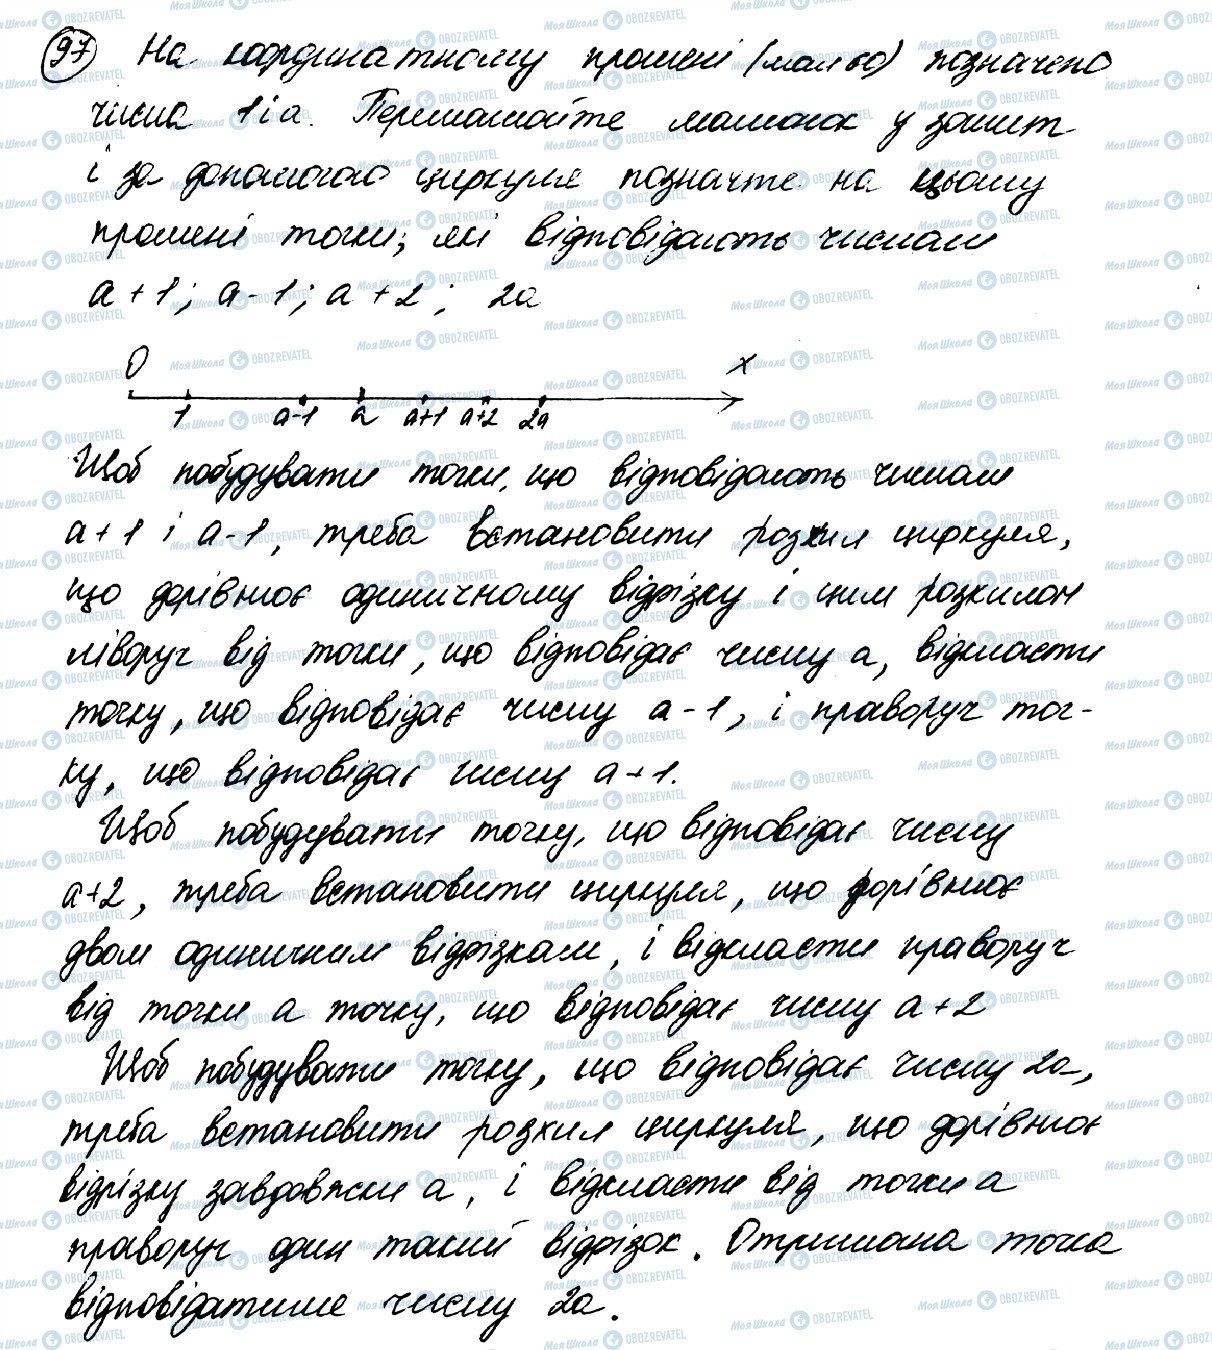 97 На координатному промені (мал 60) позначено
числа 1 і а. Перемалюйте малюнок у зошит
і за допомогою циркуля позначте на цьому
промені точки, які відповідають числам
а + 1; а - 1; а + 2; 2а
О х
1 а-1 а а+1 а+2 2а
Щоб побудувати точки, що відповідають числам
а + 1 і а - 1, треба встановити розхил циркуля,
що дорівнює одиничному відрізку і цим розхилом
ліворуч від точки, що відповідає числу а, відкласти
точку, що відповідає числу а - 1, і праворуч точ-
ку, що відповідає числу а + 1.
Щоб побудувати точку, що відповідає числу
а+2, треба встановити циркуля, що дорівнює
двом одиничним відрізкам, і відкласти праворуч
від точки а точку, що відповідає числу а + 2
Щоб побудувати точку, що відповідає числу 2а,
треба встановити розхил циркуля, що дорівнює
відрізку завдовжки а, і відкласти від точки а
праворуч один такий відрізок. Отримана точка
відповідатиме числу 2а.